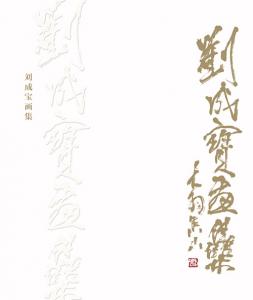 劉成寶畫集
刘成宝画集
劉成寶畫集